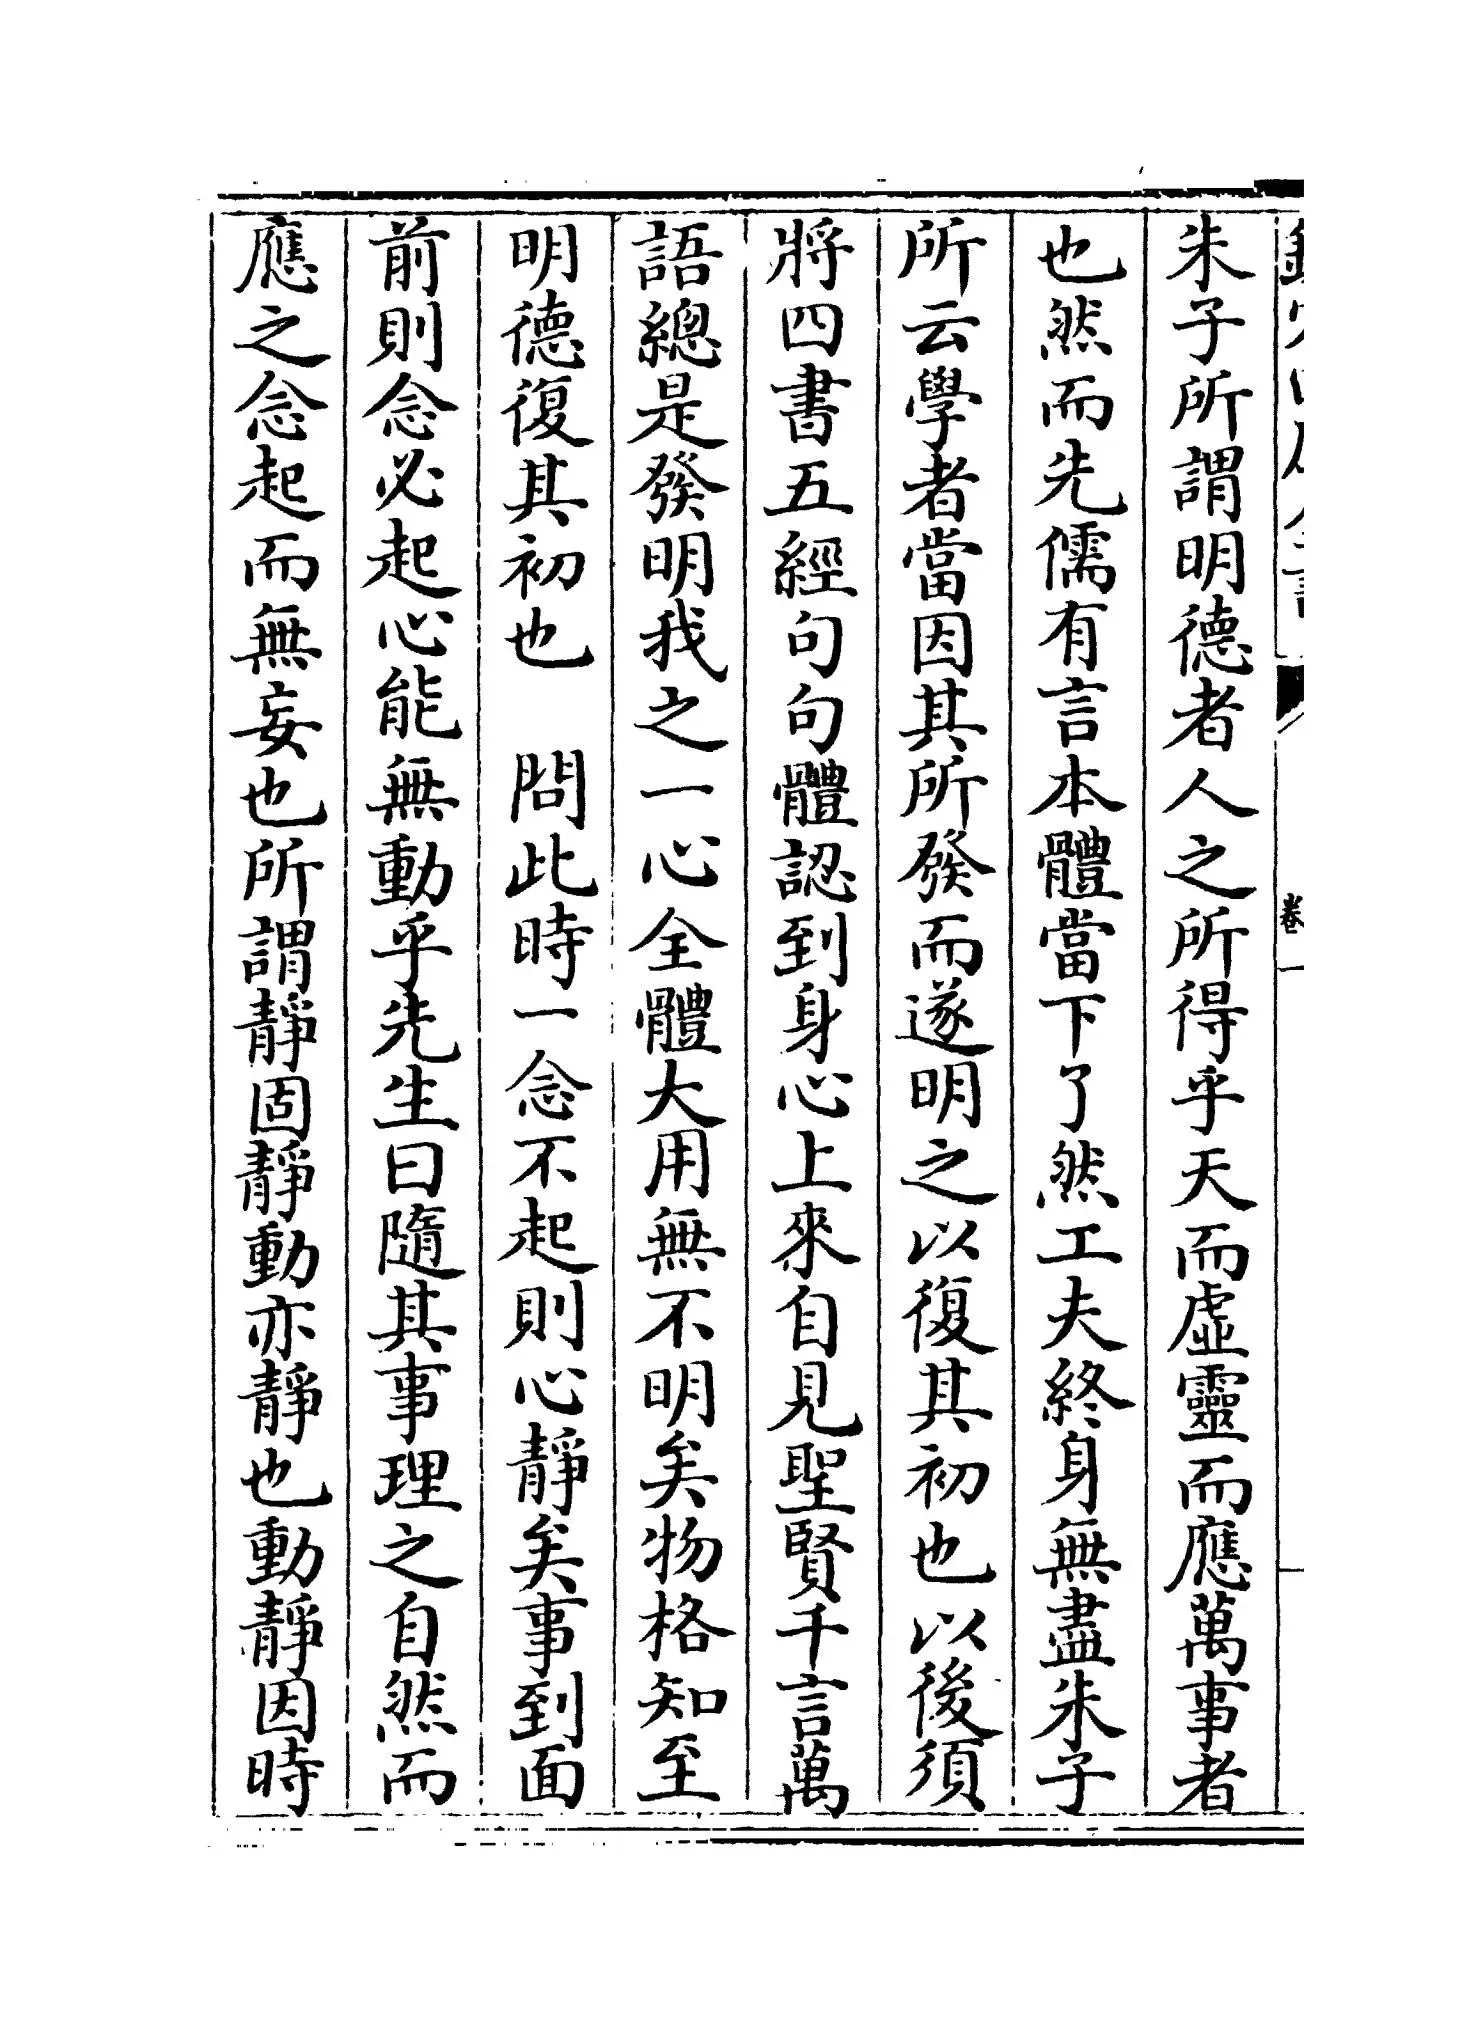 朱子所謂明德者人之所得乎天而虛靈而應萬事者
也然而先儒有言本體當下了然工夫終身無盡朱子
所云學者當因其所發而遂明之以復其初也以後須
將四書五經句句體認到身心上來自見聖賢千言萬
語總是發明我之一心全體大用無不明矣物格知至
明德復其初也　問此時一念不起則心靜矣事到面
前則念必起心能無動乎先生曰隨其事理之自然而
應之念起而無妄也所謂靜固靜動亦靜也動靜因時